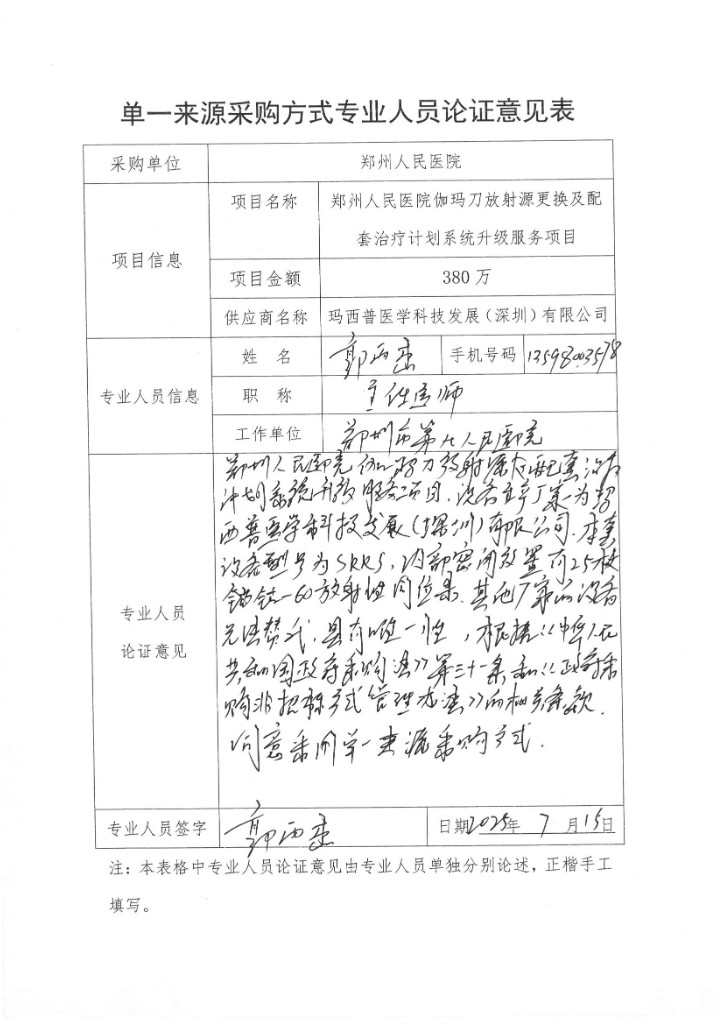 单一来源采购方式专业人员论证意见表
采购单位 郑州人民医院
项目信息
项目名称 郑州人民医院伽玛刀放射源更换及配
套治疗计划系统升级服务项目
项目金额 380万
供应商名称 玛西普医学科技发展（深圳）有限公司
专业人员信息
姓 名 郭西峦 手机号码
职 称 主任医师
工作单位 郑州市第七人民医院
专业人员
论证意见
郑州人民医院伽玛刀放射源及配套治疗
计划系统升级服务项目，设备生产厂家为玛
西普医学科技发展（深圳）有限公司，
设备型号为SRRS，内部密闭放置有25枚
钴-60放射性同位素，其他厂家的设备
无法替代，具有唯一性，根据《中华人民
共和国政府采购法》第三十一条和《政府采
购非招标方式管理办法》的相关条款，
同意采用单一来源采购方式．
专业人员签字 郭西峦 日期2025年 7 月15日
注：本表格中专业人员论证意见由专业人员单独分别论述，正楷手工
填写。